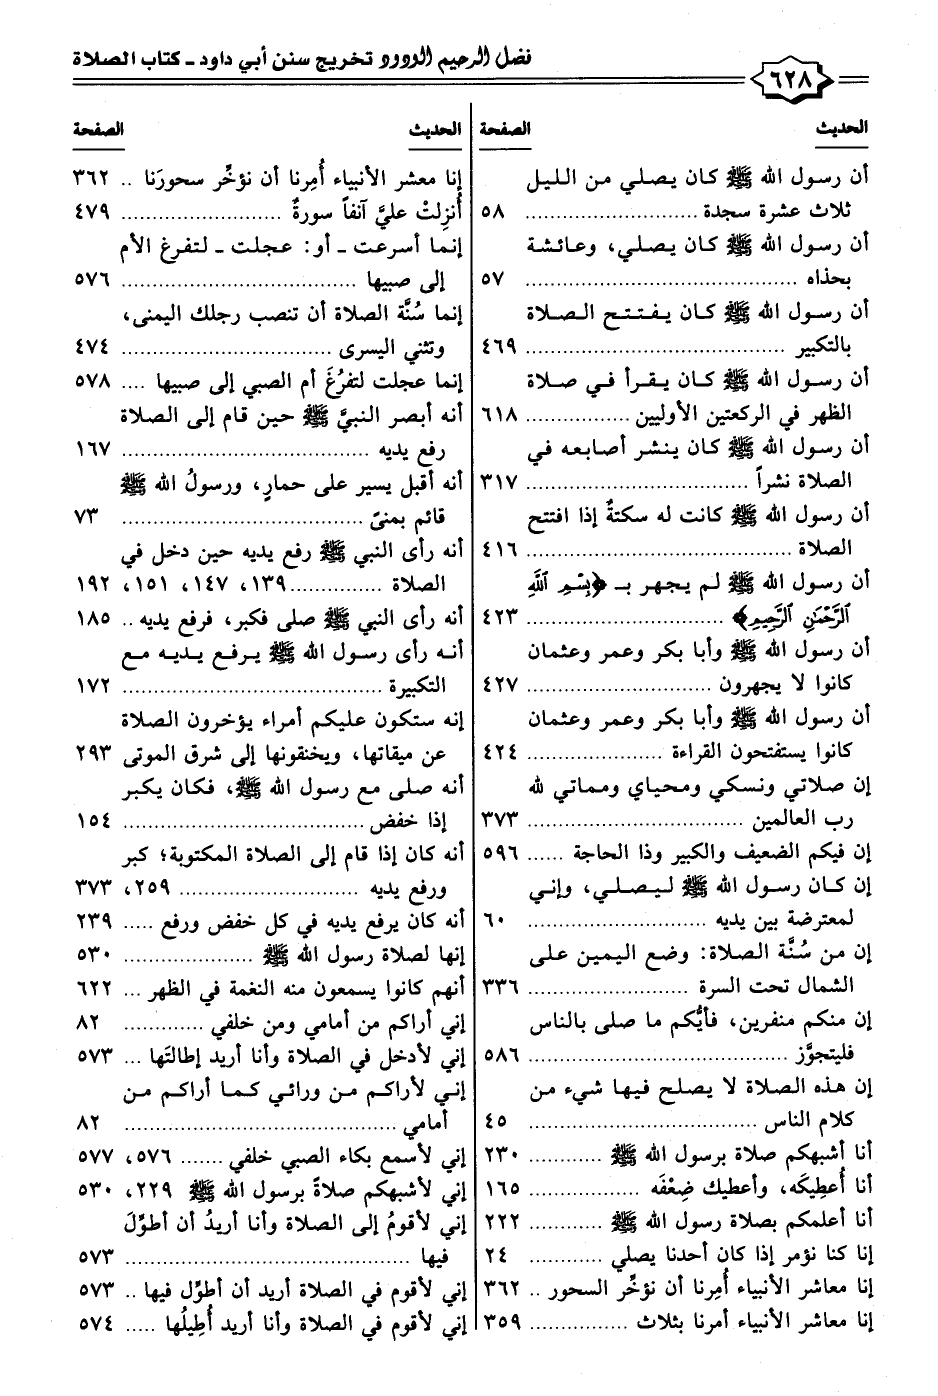 فضل الرحيم الودود تخريج سنن أبي داود - كتاب الصلاة
٦٢٨
الحديث الصفحة
أن رسول الله ﷺ كان يصلي من الليل
ثلاث عشرة سجدة ........................... ٥٨
أن رسول الله ﷺ كان يصلي، وعائشة
بحذاه ........................................ ٥٧
أن رسول الله ﷺ كان يفتتح الصلاة
بالتكبير ...................................... ٤٦٩
أن رسول الله ﷺ كان يقرأ في صلاة
الظهر في الركعتين الأوليين ................ ٦١٨
أن رسول الله ﷺ كان ينشر أصابعه في
الصلاة نشراً ................................. ٣١٧
أن رسول الله ﷺ كانت له سكتةٌ إذا افتتح
الصلاة ....................................... ٤١٦
أن رسول الله ﷺ لم يجهر بـ ﴿بِسْمِ اللَّهِ
الرَّحْمَٰنِ الرَّحِيمِ﴾ ............................ ٤٢٣
أن رسول الله ﷺ وأبا بكر وعمر وعثمان
كانوا لا يجهرون ............................ ٤٢٧
أن رسول الله ﷺ وأبا بكر وعمر وعثمان
كانوا يستفتحون القراءة ..................... ٤٢٤
إن صلاتي ونسكي ومحياي ومماتي لله
رب العالمين ................................. ٣٧٣
إن فيكم الضعيف والكبير وذا الحاجة ...... ٥٩٦
إن كان رسول الله ﷺ ليصلي، وإني
لمعترضة بين يديه ........................... ٦٠
إن من سُنَّة الصلاة: وضع اليمين على
الشمال تحت السرة .......................... ٣٣٦
إن منكم منفرين، فأيُّكم ما صلى بالناس
فليتجوَّز ...................................... ٥٨٦
إن هذه الصلاة لا يصلح فيها شيء من
كلام الناس ................................... ٤٥
أنا أشبهكم صلاة برسول الله ﷺ ............ ٢٣٠
أنا أُعطِيكَه، وأعطيك ضِعْفَه ................. ١٦٥
أنا أعلمكم بصلاة رسول الله ﷺ ............ ٢٢٢
إنا كنا نؤمر إذا كان أحدنا يصلي ............ ٢٤
إنا معاشر الأنبياء أُمِرنا أن نؤخِّر السحور .. ٣٦٢
إنا معاشر الأنبياء أمرنا بثلاث .............. ٣٥٩
الحديث الصفحة
إنا معشر الأنبياء أُمِرنا أن نؤخِّر سحورَنا .. ٣٦٢
أُنزِلتْ عليَّ آنفاً سورةٌ ......................... ٤٧٩
إنما أسرعت - أو: عجلت - لتفرغ الأم
إلى صبيها .................................... ٥٧٦
إنما سُنَّة الصلاة أن تنصب رجلك اليمنى،
وتثني اليسرى ................................ ٤٧٤
إنما عجلت لتفرُغَ أم الصبي إلى صبيها .... ٥٧٨
أنه أبصر النبيَّ ﷺ حين قام إلى الصلاة
رفع يديه ...................................... ١٦٧
أنه أقبل يسير على حمارٍ، ورسولُ الله ﷺ
قائم بمنىً ..................................... ٧٣
أنه رأى النبي ﷺ رفع يديه حين دخل في
الصلاة .............. ١٣٩، ١٤٧، ١٥١، ١٩٢
أنه رأى النبي ﷺ صلى فكبر، فرفع يديه .. ١٨٥
أنه رأى رسول الله ﷺ يرفع يديه مع
التكبيرة ....................................... ١٧٢
إنه ستكون عليكم أمراء يؤخرون الصلاة
عن ميقاتها، ويخنقونها إلى شرق الموتى ٢٩٣
أنه صلى مع رسول الله ﷺ، فكان يكبر
إذا خفض ..................................... ١٥٤
أنه كان إذا قام إلى الصلاة المكتوبة؛ كبر
ورفع يديه ............................ ٢٥٩، ٣٧٣
أنه كان يرفع يديه في كل خفض ورفع ..... ٢٣٩
إنها لصلاة رسول الله ﷺ .................... ٥٣٠
أنهم كانوا يسمعون منه النغمة في الظهر ... ٦٢٢
إني أراكم من أمامي ومن خلفي ............. ٨٢
إني لأدخل في الصلاة وأنا أريد إطالتَها ... ٥٧٣
إني لأراكم من ورائي كما أراكم من
أمامي ......................................... ٨٢
إني لأسمع بكاء الصبي خلفي ....... ٥٧٦، ٥٧٧
إني لأشبهكم صلاةً برسول الله ﷺ ٢٢٩، ٥٣٠
إني لأقومُ إلى الصلاة وأنا أريدُ أن أطوِّلَ
فيها ........................................... ٥٧٣
إني لأقوم في الصلاة أريد أن أطوِّل فيها .. ٥٧٣
إني لأقوم في الصلاة وأنا أريد أُطِيلُها ..... ٥٧٤